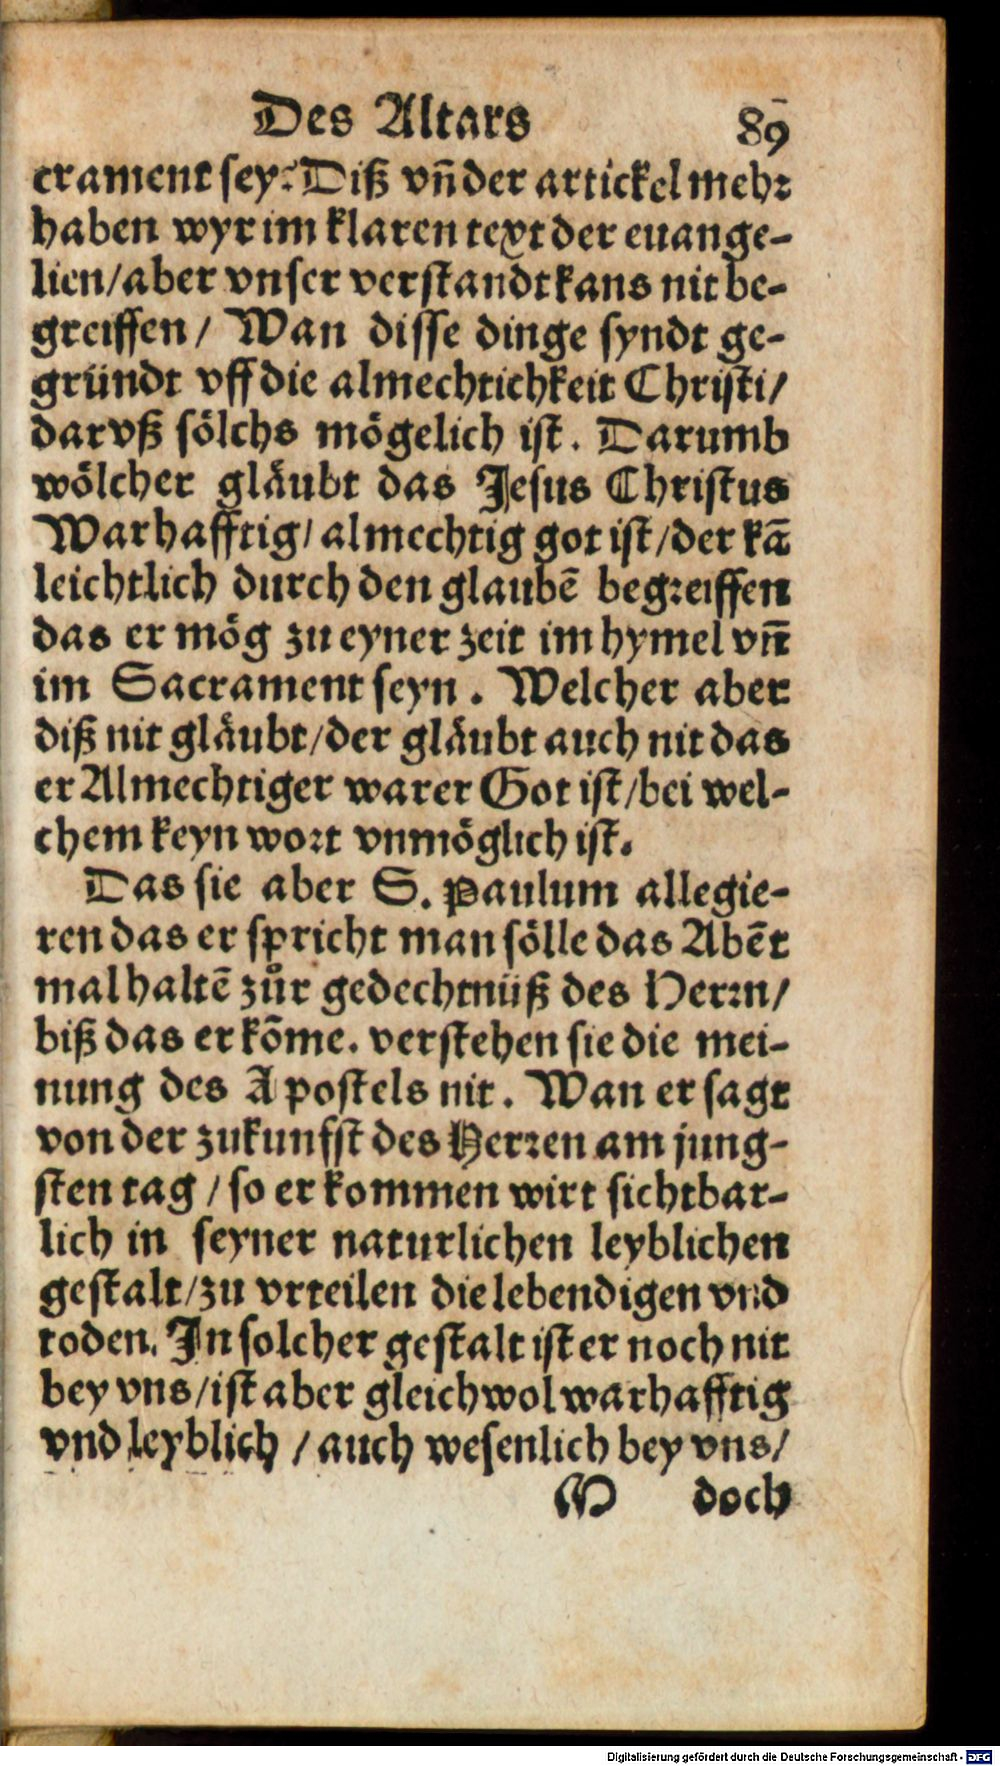 Des Altars 89
crament sey? Diß vn̄ der artickel mehr
haben wyr im klaren text der euange-
lien/aber vnser verstandt kans nit be-
greiffen/ Wan disse dinge syndt ge-
gründt vff die almechtichkeit Christi/
darvß sölchs mögelich ist. Darumb
wölcher gläubt das Jesus Christus
Warhafftig/ almechtig got ist/der kā
leichtlich durch den glaubē begreiffen
das er mög zu eyner zeit im hymel vn̄
im Sacrament seyn. Welcher aber
diß nit gläubt/der gläubt auch nit das
er Almechtiger warer Got ist/bei wel-
chem keyn wort vnmöglich ist.
Das sie aber S. Paulum allegie-
ren das er spricht man sölle das Abēt
mal haltē zůr gedechtnüß des Herrn/
biß das er kōme. verstehen sie die mei-
nung des Apostels nit. Wan er sagt
von der zukunfft des Herren am jung-
sten tag/ so er kommen wirt sichtbar-
lich in seyner naturlichen leyblichen
gestalt/zu vrteilen die lebendigen vnd
toden. In solcher gestalt ist er noch nit
bey vns/ist aber gleichwol warhafftig
vnd leyblich/ auch wesenlich bey vns/
M doch
Digitalisierung gefördert durch die Deutsche Forschungsgemeinschaft - DFG